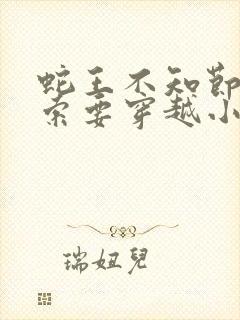 蛇王不知節
索要穿越小
瑞妞兒